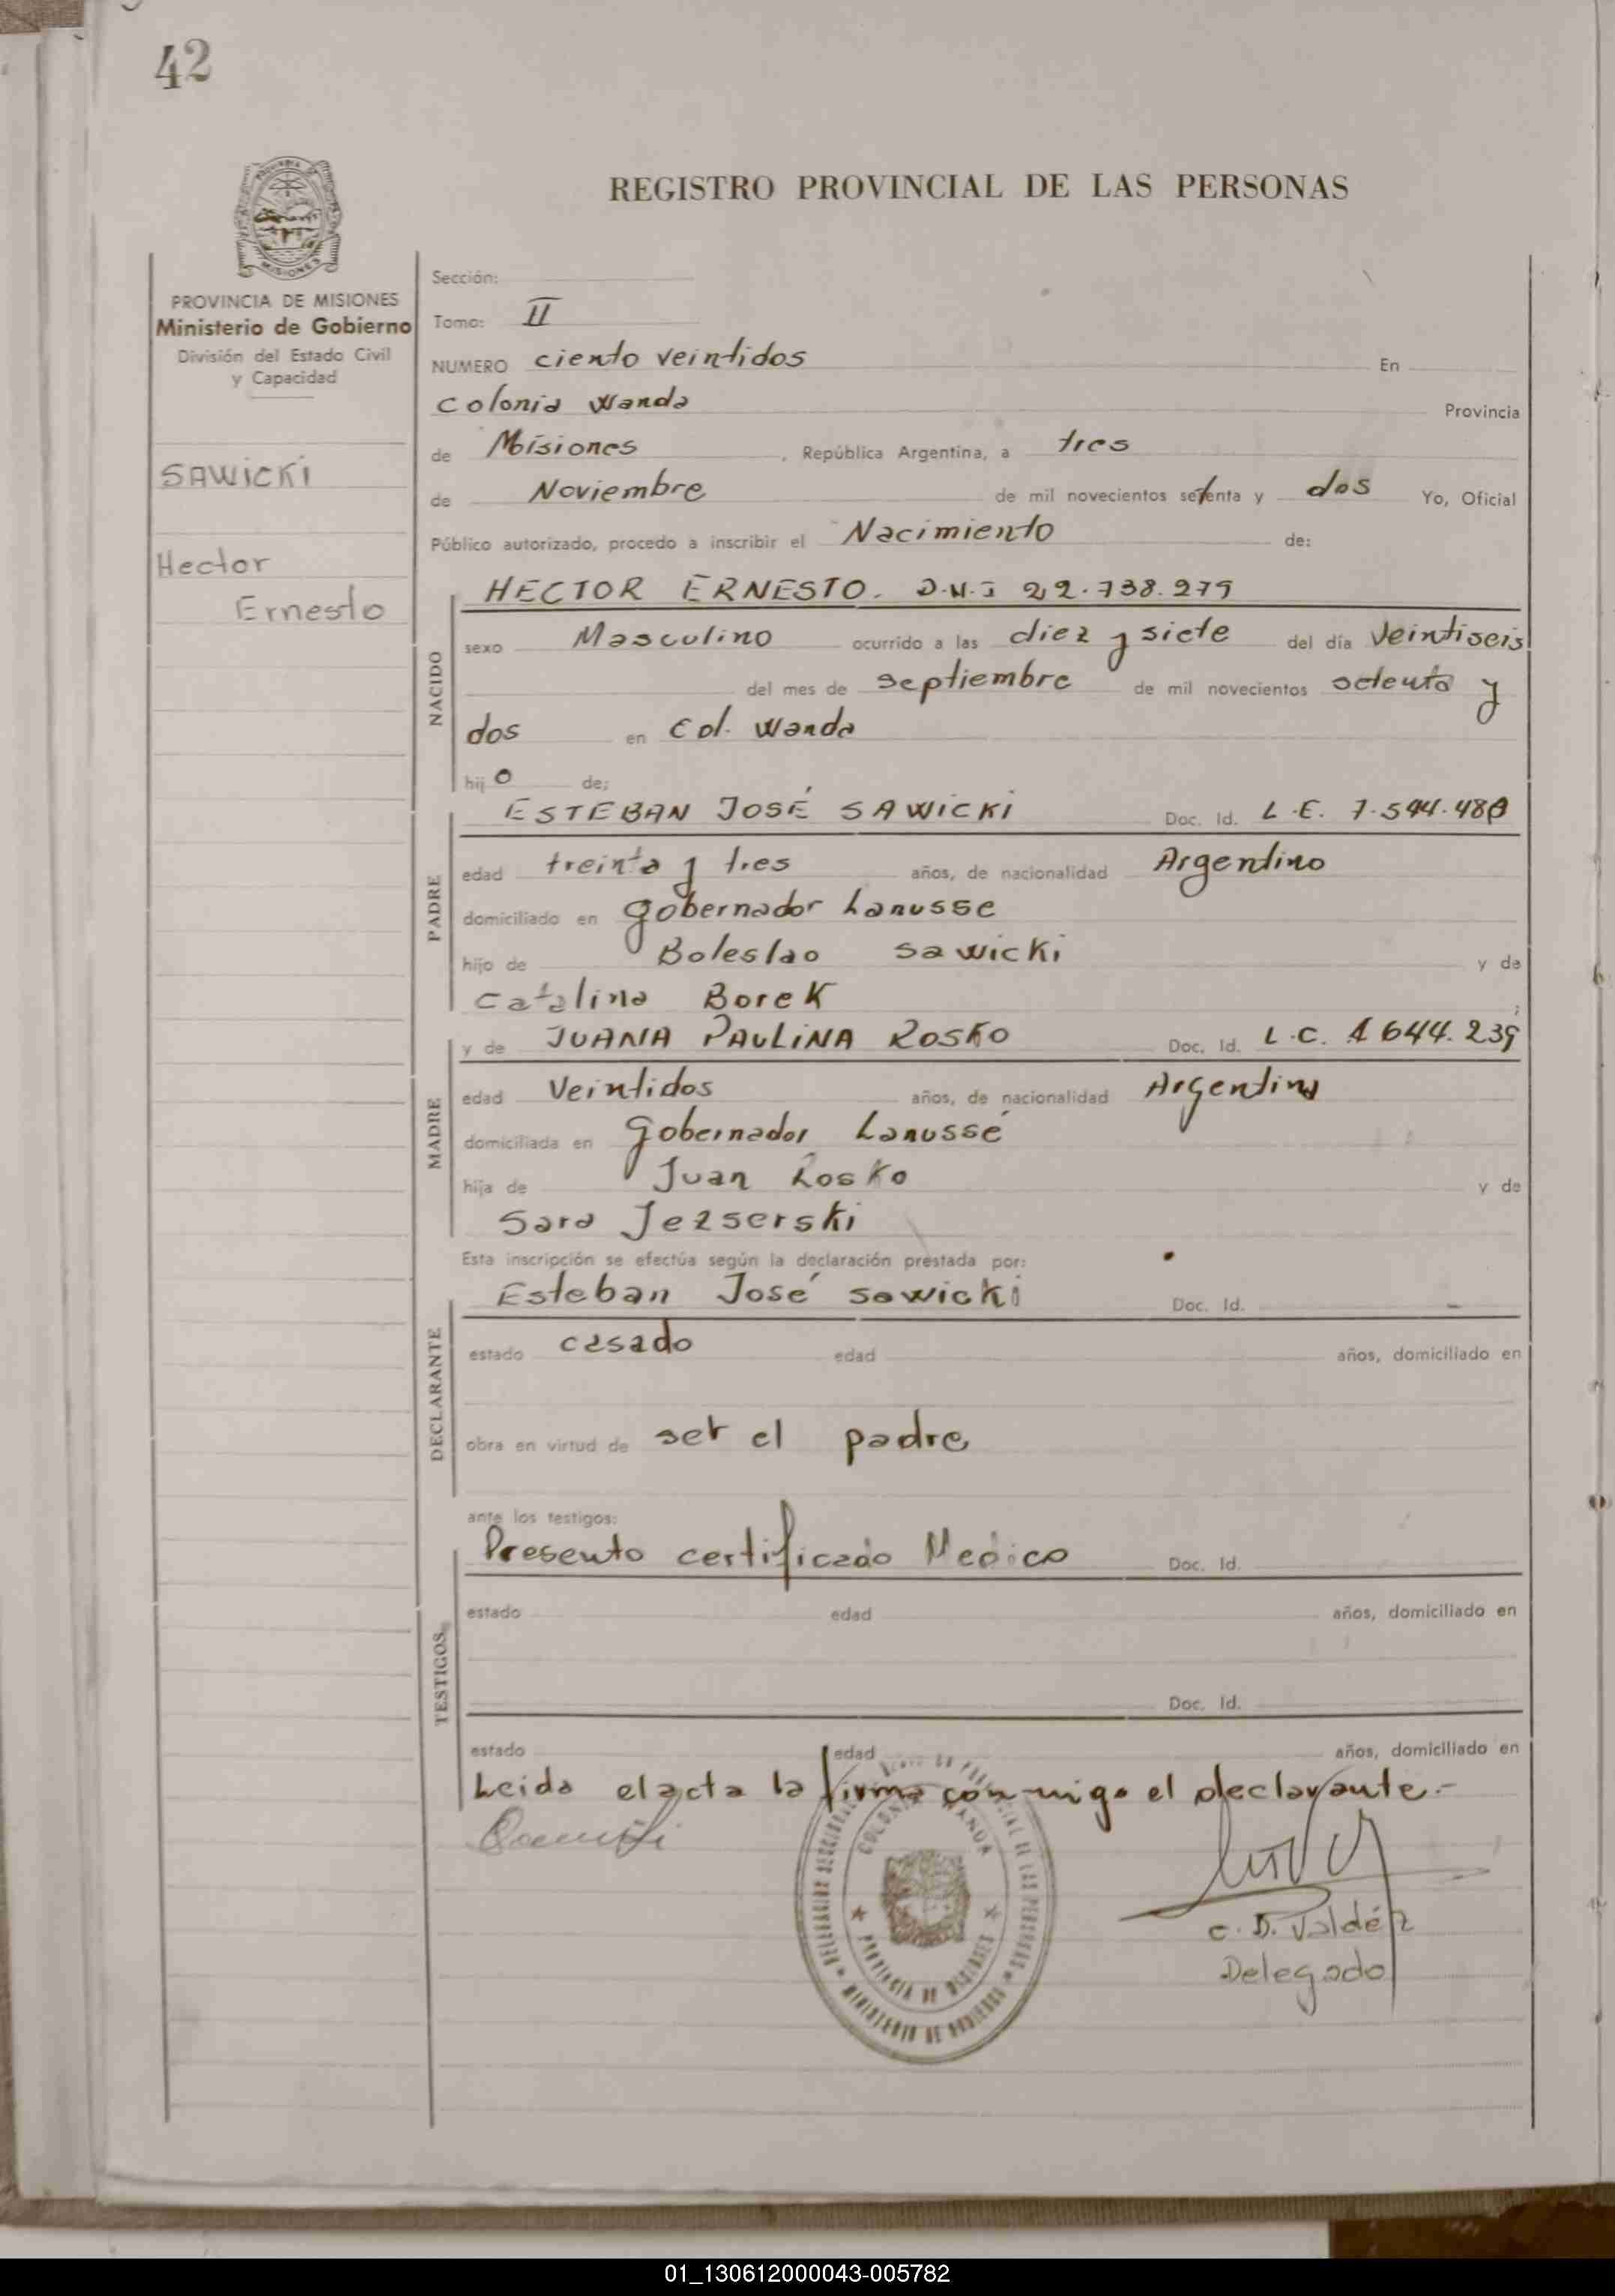 42
REGISTRO PROVINCIAL DE LAS PERSONAS
PROVINCIA DE MISIONES
Ministerio de Gobierno
División del Estado Civil
y Capacidad
SAWICKI
Hector
Ernesto
Sección:
Tomo: II
NUMERO ciento veintidos En
Colonia Wanda Provincia
de Misiones , República Argentina, a tres
de Noviembre de mil novecientos setenta y dos Yo, Oficial
Público autorizado, procedo a inscribir el Nacimiento de:
NACIDO
HECTOR ERNESTO. D.N.I 22.738.279
sexo Masculino ocurrido a las diez y siete del día Veintiseis
del mes de septiembre de mil novecientos setenta y
dos en Col. Wanda
hijo de:
PADRE
ESTEBAN JOSÉ SAWICKI Doc. Id. L.E. 7.544.480
edad treinta y tres años, de nacionalidad Argentino
domiciliado en gobernador Lanusse
hijo de Boleslao Sawicki y de
Catalina Borek
MADRE
y de JUANA PAULINA ROSKO Doc. Id. L.C. 1644.239
edad Veintidos años, de nacionalidad Argentina
domiciliada en gobernador Lanusse
hija de Juan Rosko y de
Sara Jezserski
Esta inscripción se efectúa según la declaración prestada por:
DECLARANTE
Esteban José Sawicki Doc. Id. -
estado casado edad años, domiciliado en
obra en virtud de ser el padre
ante los testigos:
TESTIGOS
Presento certificado Medico Doc. Id.
estado edad años, domiciliado en
Doc. Id.
estado edad años, domiciliado en
Leida el acta la firma conmigo el declarante.-
COLONIA WANDA
PROVINCIA DE MISIONES
MINISTERIO DE GOBIERNO
C. D. Valdéz
Delegado
01_130612000043-005782